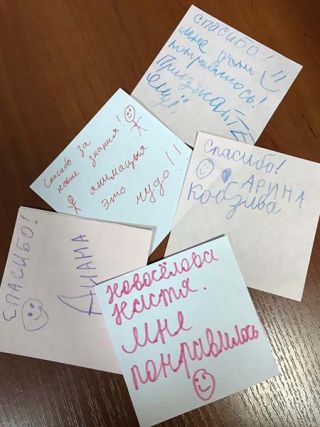 СПАСИБО!
Мне очень
понравилось!
Приезжайте
ещё!
Спасибо за
новые знания!
анимация
это чудо!!
Спасибо!
АРИНА
Кобзива
СПАСИБО!
Диана
Новосёлова
Настя.
Мне
понравилось